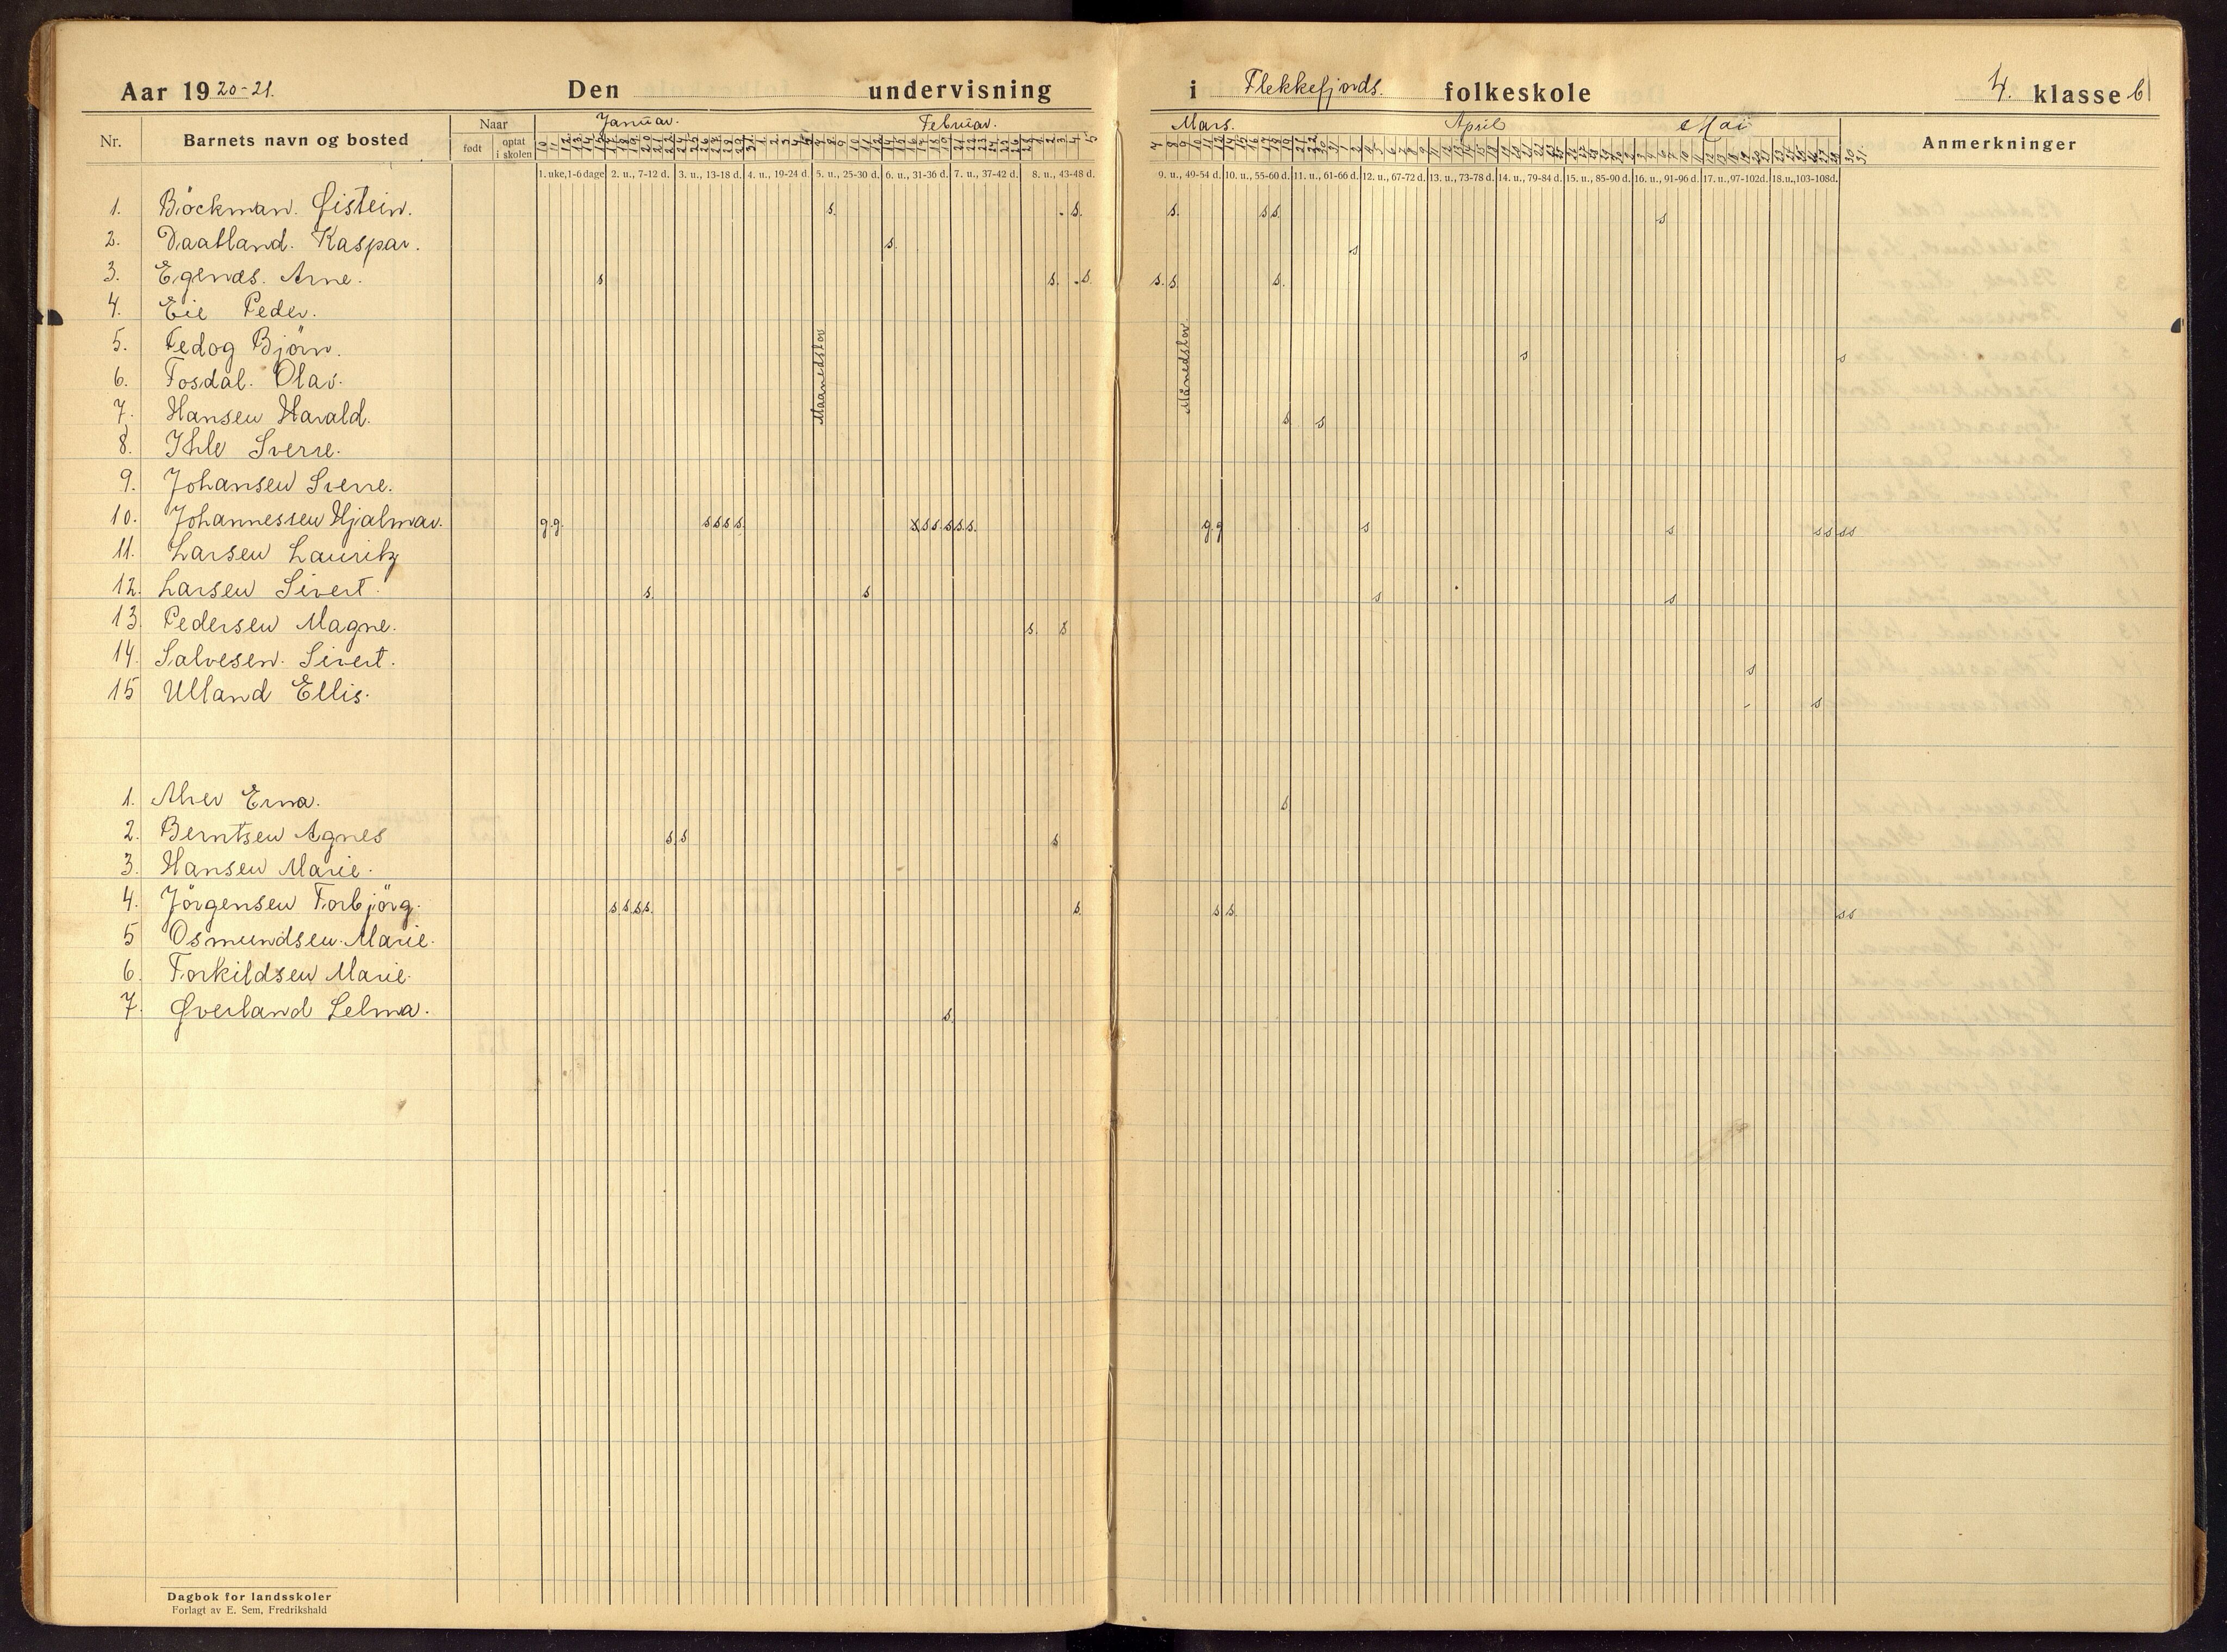 Aar 1920-21. Den undervisning i Flekkefjords. folkeskole 4. klasse b
Nr. Barnets navn og bosted Naar født optat i skolen Januar. Februar. Mars. April Mai Anmerkninger
1. uke, 1-6 dage 2. u., 7-12 d. 3. u., 13-18 d. 4. u., 19-24 d. 5. u., 25-30 d. 6. u., 31-36 d. 7. u., 37-42 d. 8. u., 43-48 d. 9. u., 49-54 d. 10. u., 55-60 d. 11. u., 61-66 d. 12. u., 67-72 d. 13. u., 73-78 d. 14. u., 79-84 d. 15. u., 85-90 d. 16. u., 91-96 d. 17. u., 97-102d. 18.u.,103-108d.
1. Böckman. Øistein. s. s. s. s s. s
2. Daatland. Kaspar. s. s
3. Egenes. Arne. s s. s s. s. s.
4. Eie Peder.
5. Fedog Bjørn. s s
6. Fosdal. Olav.
7. Hansen Harald. s s
Maanedslov
Månedslov
8. Ihle Sverre.
9. Johansen Sverre.
10. Johannessen Hjalmar. g.g. s s s s. s s s. s s. s. g. g s s s s s s
11. Larsen Lauritz
12. Larsen Sivert. s. s s s
13. Pedersen Magne. s. s
14. Salvesen. Sivert. s
15 Ulland Ellis. s
1. Alver Erna. s
2. Berntsen Agnes s s s
3. Hansen Marie.
4. Jörgensen Torbjörg. s s s s. s. s s. s s
5 Osmundsen. Marie.
6. Torkildsen Marie.
7. Øverland Selma. s.
Dagbok for landsskoler
Forlagt av E. Sem, Fredrikshald